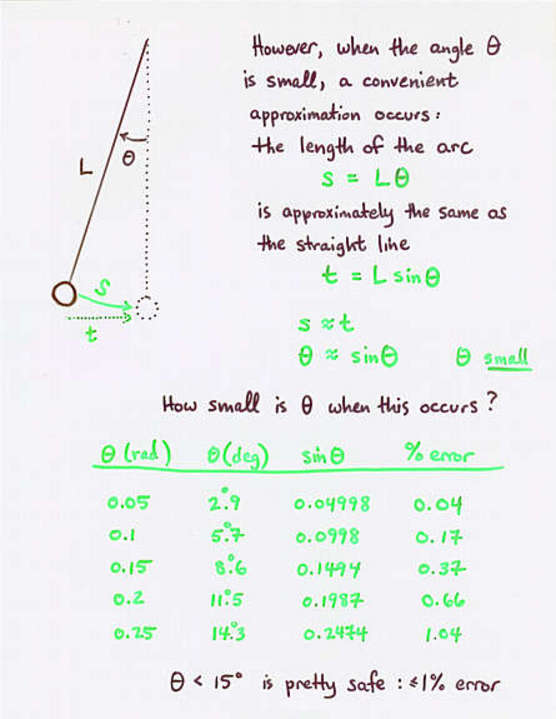 However, when the angle θ
is small, a convenient
approximation occurs:
the length of the arc
s = Lθ
is approximately the same as
the straight line
t = L sinθ
s ≈ t
θ ≈ sinθ θ small
L
θ
s
t
How small is θ when this occurs?
θ (rad) θ (deg) sin θ % error
0.05 2.°9 0.04998 0.04
0.1 5.°7 0.0998 0.17
0.15 8.°6 0.1494 0.37
0.2 11.°5 0.1987 0.66
0.25 14.°3 0.2474 1.04
θ < 15° is pretty safe : ≤1% error